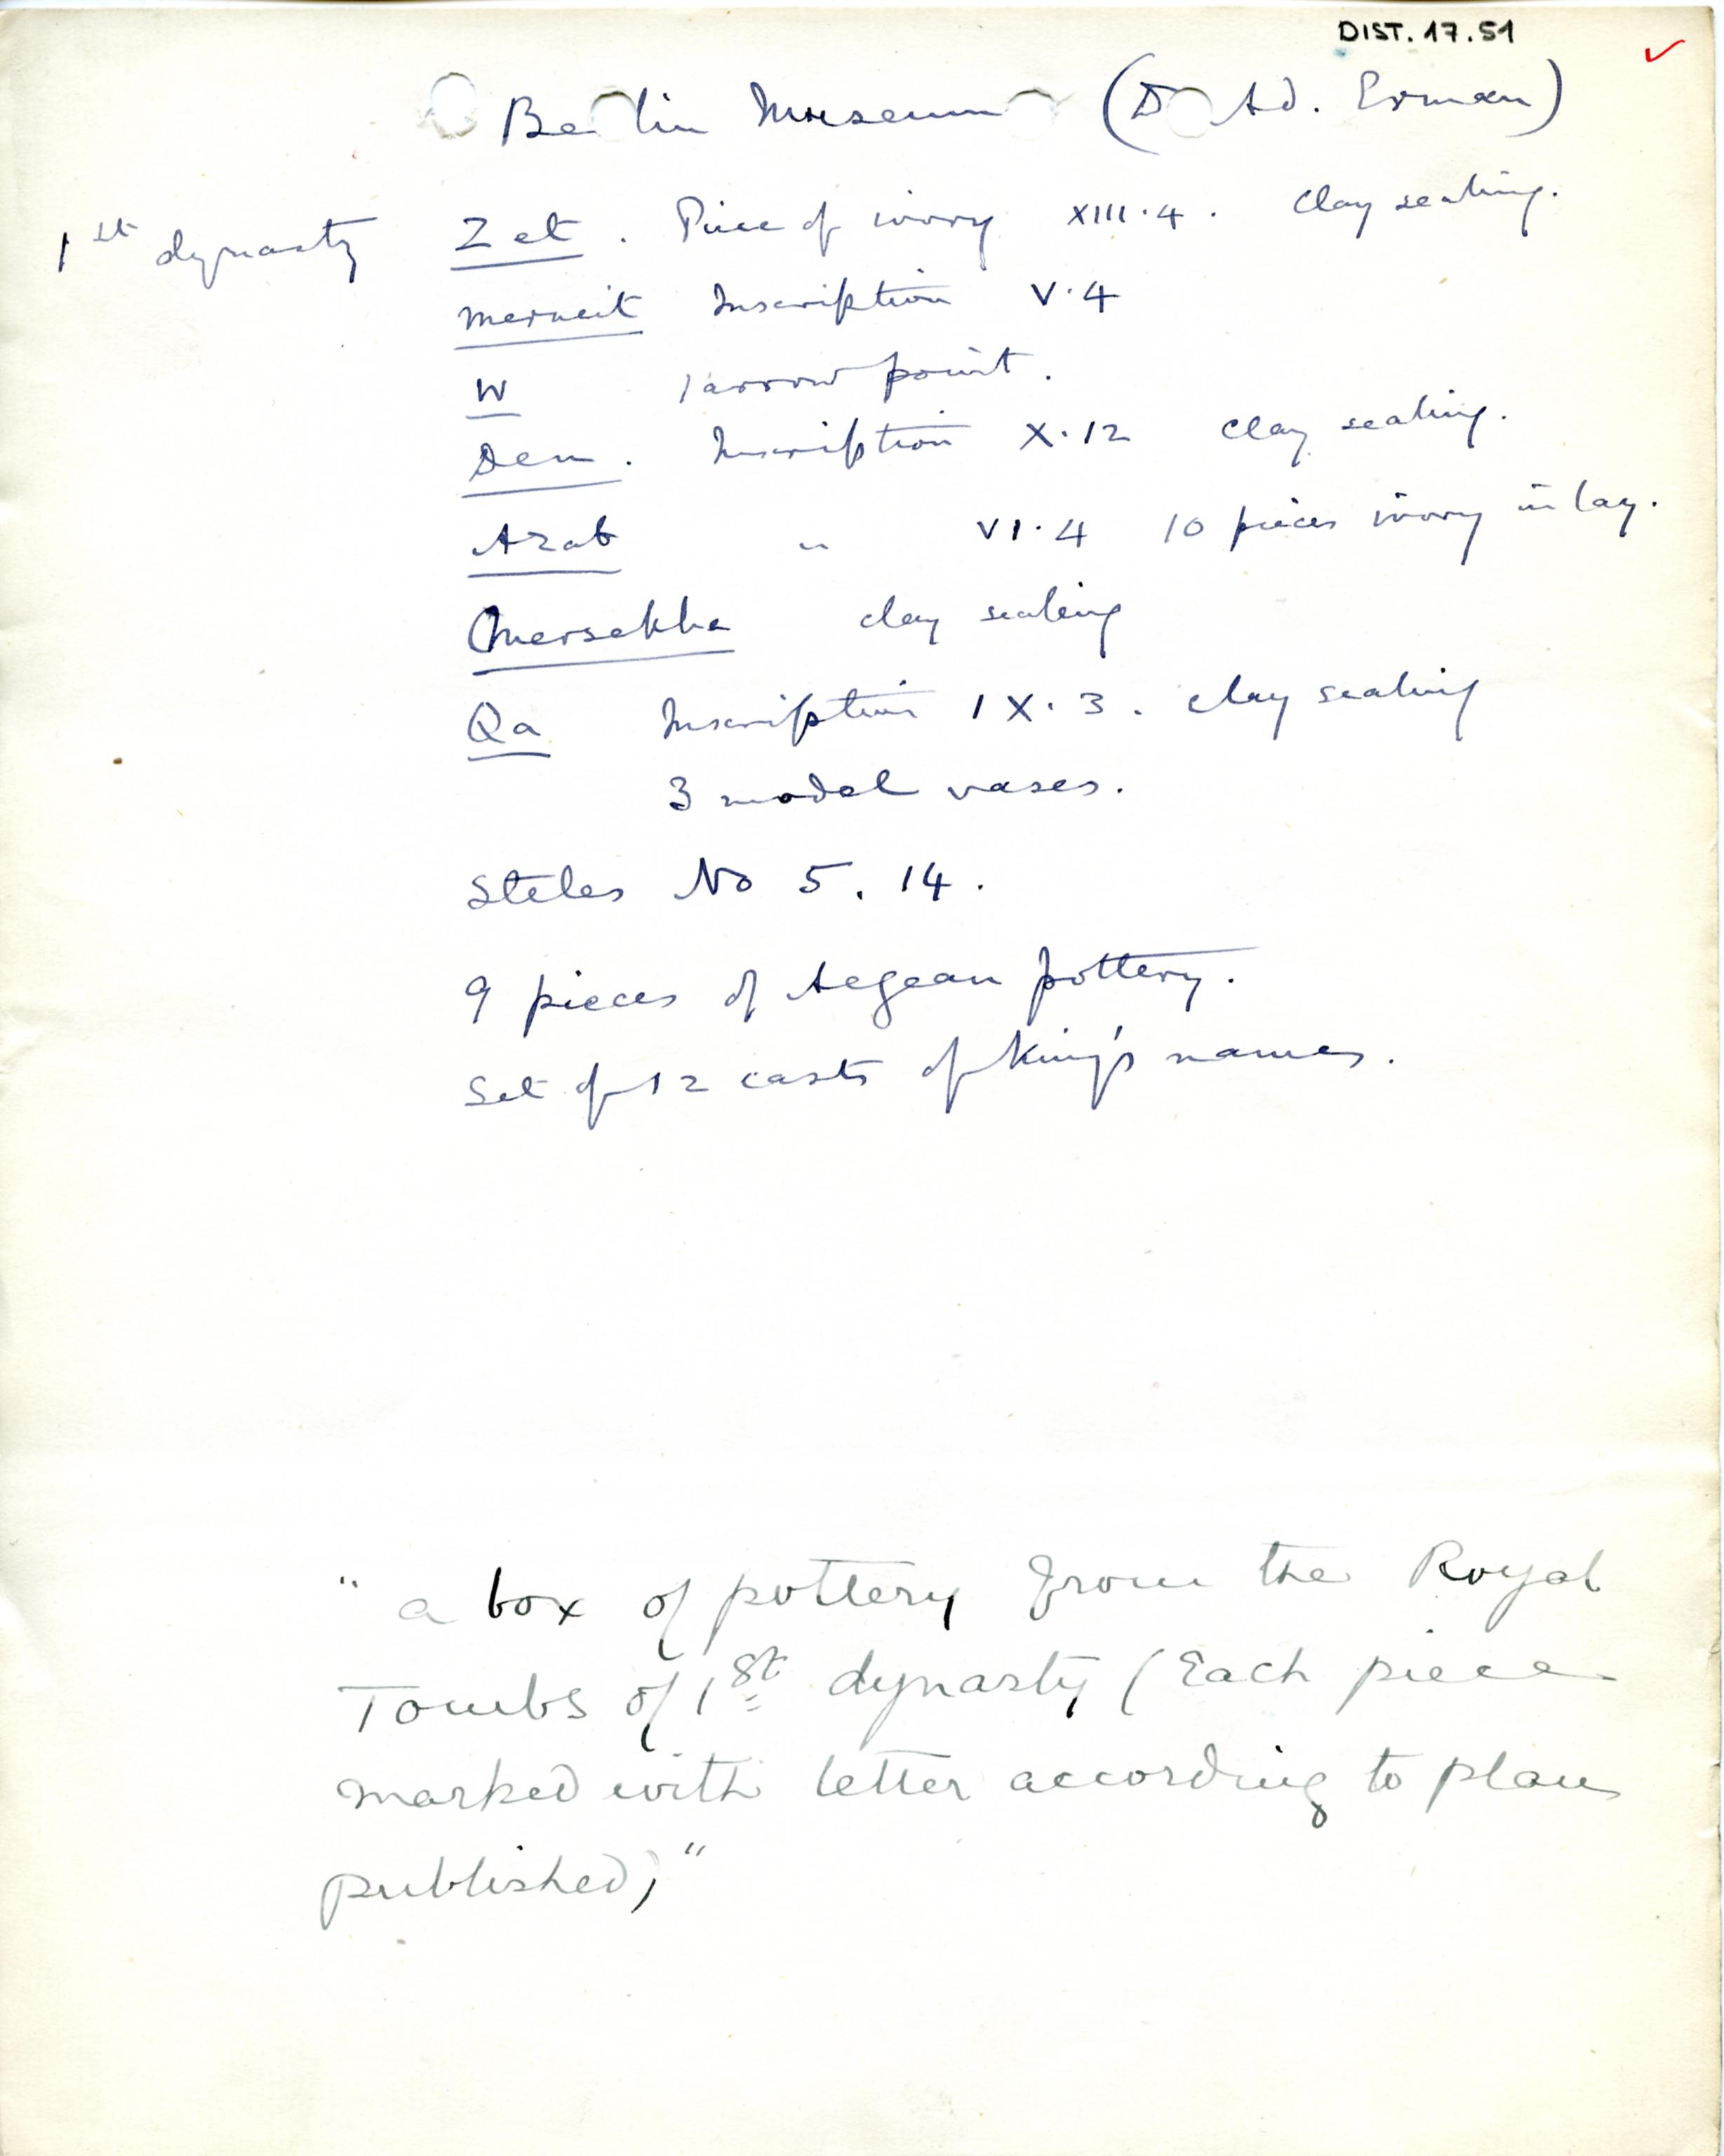 DIST. 17.51
Be lin Museum (D Ad. Erman)
1st dynasty Zet. Piece of ivory XIII.4. Clay sealing.
Merneit Inscription V.4
W 1 arrow point.
Den. Inscription X.12 clay sealing.
Azab " VI.4 10 pieces ivory inlay.
Mersekha clay sealing
Qa Inscription IX.3. clay sealing
3 model vases.
Steles No 5. 14.
9 pieces of Aegean pottery.
Set of 12 casts of King's names.
"a box of pottery from the Royal
Tombs of 1st dynasty (Each piece
marked with letter according to plans
published)"